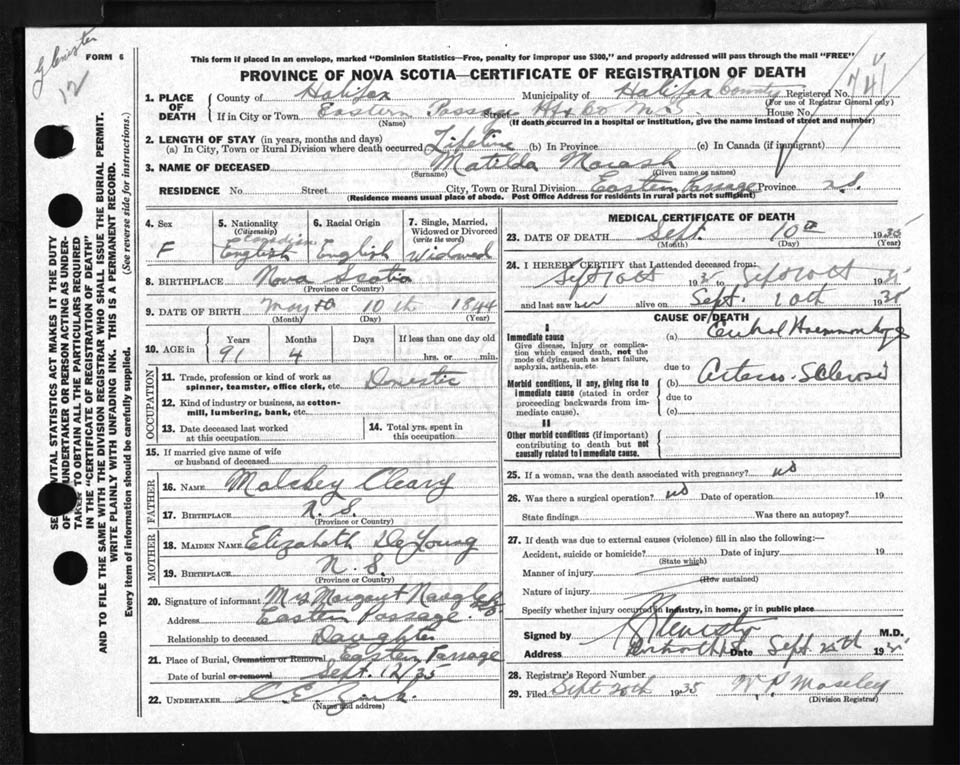 Glenister
12
FORM 6
This form if placed in an envelope, marked "Dominion Statistics—Free, penalty for improper use $300," and properly addressed will pass through the mail "FREE"
PROVINCE OF NOVA SCOTIA—CERTIFICATE OF REGISTRATION OF DEATH
741
1. PLACE OF DEATH
County of Halifax Municipality of Halifax County Registered No.
(For use of Registrar General only)
If in City or Town Eastern Passage Street Hfx Co N.S. House No.
(Name) (If death occurred in a hospital or institution, give the name instead of street and number)
2. LENGTH OF STAY (in years, months and days)
(a) In City, Town or Rural Division where death occurred Lifetime (b) In Province (c) In Canada (if immigrant)
3. NAME OF DECEASED Matilda Morash
(Surname) (Given name or names)
RESIDENCE No. Street City, Town or Rural Division Eastern Passage Province N.S.
(Residence means usual place of abode. Post Office Address for residents in rural parts not sufficient)
4. Sex
F
5. Nationality (Citizenship)
Canadian
English
6. Racial Origin
English
7. Single, Married, Widowed or Divorced (write the word)
Widowed
8. BIRTHPLACE Nova Scotia
(Province or Country)
9. DATE OF BIRTH May 10th 1844
(Month) (Day) (Year)
10. AGE in Years Months Days If less than one day old
91 4 hrs. or min.
OCCUPATION
11. Trade, profession or kind of work as spinner, teamster, office clerk, etc. Domestic
12. Kind of industry or business, as cotton-mill, lumbering, bank, etc.
13. Date deceased last worked at this occupation
14. Total yrs. spent in this occupation
15. If married give name of wife or husband of deceased
FATHER
16. NAME Malasey Cleary
17. BIRTHPLACE N.S.
(Province or Country)
MOTHER
18. MAIDEN NAME Elizabeth DeYoung
19. BIRTHPLACE N.S.
(Province or Country)
20. Signature of informant Mrs Margaret Naugle
Address Eastern Passage
Relationship to deceased Daughter
21. Place of Burial, Cremation or Removal Eastern Passage
Date of burial or removal Sept. 12/35
22. UNDERTAKER C.E. Zink
(Name and address)
MEDICAL CERTIFICATE OF DEATH
23. DATE OF DEATH Sept. 10th 1935
(Month) (Day) (Year)
24. I HEREBY CERTIFY that I attended deceased from:
Sept 10th 1935 Sept 10th 1935
and last saw her alive on Sept. 10th 1935
CAUSE OF DEATH
I
Immediate cause
Give disease, injury or complication which caused death, not the mode of dying, such as heart failure, asphyxia, asthenia, etc.
(a) Cerebral Haemmorhage
due to
Morbid conditions, if any, giving rise to immediate cause (stated in order proceeding backwards from immediate cause).
(b) Arterio-Sclerosis
due to
(c)
II
Other morbid conditions (if important) contributing to death but not causally related to immediate cause.
25. If a woman, was the death associated with pregnancy? no
26. Was there a surgical operation? no Date of operation 19
State findings Was there an autopsy?
27. If death was due to external causes (violence) fill in also the following:—
Accident, suicide or homicide? Date of injury 19
(State which)
Manner of injury
(How sustained)
Nature of injury
Specify whether injury occurred in industry, in home, or in public place
Signed by Glenister M.D.
Address Dartmouth Date Sept. 25th 1935
28. Registrar's Record Number
29. Filed Sept 20th 1935 W P Moseley
(Division Registrar)
AND TO FILE THE SAME WITH THE DIVISION REGISTRAR WHO SHALL ISSUE THE BURIAL PERMIT.
WRITE PLAINLY WITH UNFADING INK. THIS IS A PERMANENT RECORD.
Every item of information should be carefully supplied. (See reverse side for instructions.)
VITAL STATISTICS ACT MAKES IT THE DUTY
UNDERTAKER OR PERSON ACTING AS UNDERTAKER
TO OBTAIN ALL THE PARTICULARS REQUIRED
IN THE "CERTIFICATE OF REGISTRATION OF DEATH"